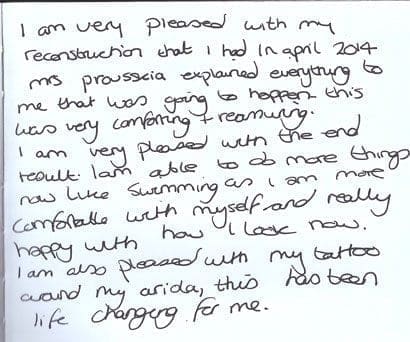 I am very pleased with my
reconstruction that I had in april 2014
mrs prousskia explained everything to
me that was going to happen this
was very comforting + reassuring.
I am very pleased with the end
result. I am able to do more things
now like swimming as I am more
comfortable with myself and really
happy with how I look now.
I am also pleased with my tattoo
around my arida, this has been
life changing for me.